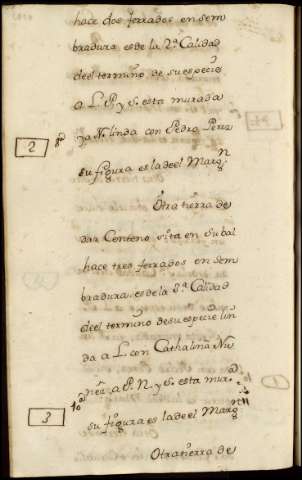 hace dos ferrados en sem
bradura es de la 2ª Calidad
de el termino de su especie
a L. P. y S. esta murada
2 8º y a N. linda con Pedro Perez
su figura es la de el Margn
Otra tierra de
dar Centeno sita en Subal
hace tres ferrados en sem
bradura, es de la 3ª Calidad
de el termino de su especie lin
da a L. con Cathalina Nu
ñez a P. N. y S. esta murª
3 10º su figura es la de el Margn
Otra tierra de